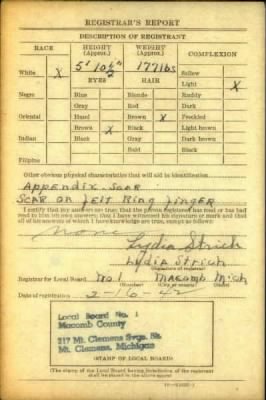 REGISTRAR'S REPORT
DESCRIPTION OF REGISTRANT
RACE HEIGHT (Approx.) WEIGHT (Approx.) COMPLEXION
5' 10½" 177 lbs
White X EYES HAIR Sallow
Light X
Negro Blue Blonde Ruddy
Gray Red Dark
Oriental Hazel Brown X Freckled
Brown X Black Light brown
Indian Black Gray Dark brown
Bald Black
Filipino
Other obvious physical characteristics that will aid in identification
Appendix Scar
SCAR ON left Ring finger
I certify that my answers are true; that the person registered has read or has had
read to him his own answers; that I have witnessed his signature or mark and that
all of his answers of which I have knowledge are true, except as follows:
none
Lydia Strich
Lydia Strich
(Signature of registrar)
Registrar for Local Board No 1 Macomb Mich
Date of registration 2-16-42
Local Board No. 1
Macomb County
217 Mt. Clemens Svgs. Bk
Mt. Clemens, Michigan
(STAMP OF LOCAL BOARD)
(The stamp of the Local Board having jurisdiction of the registrant
shall be placed in the above space)